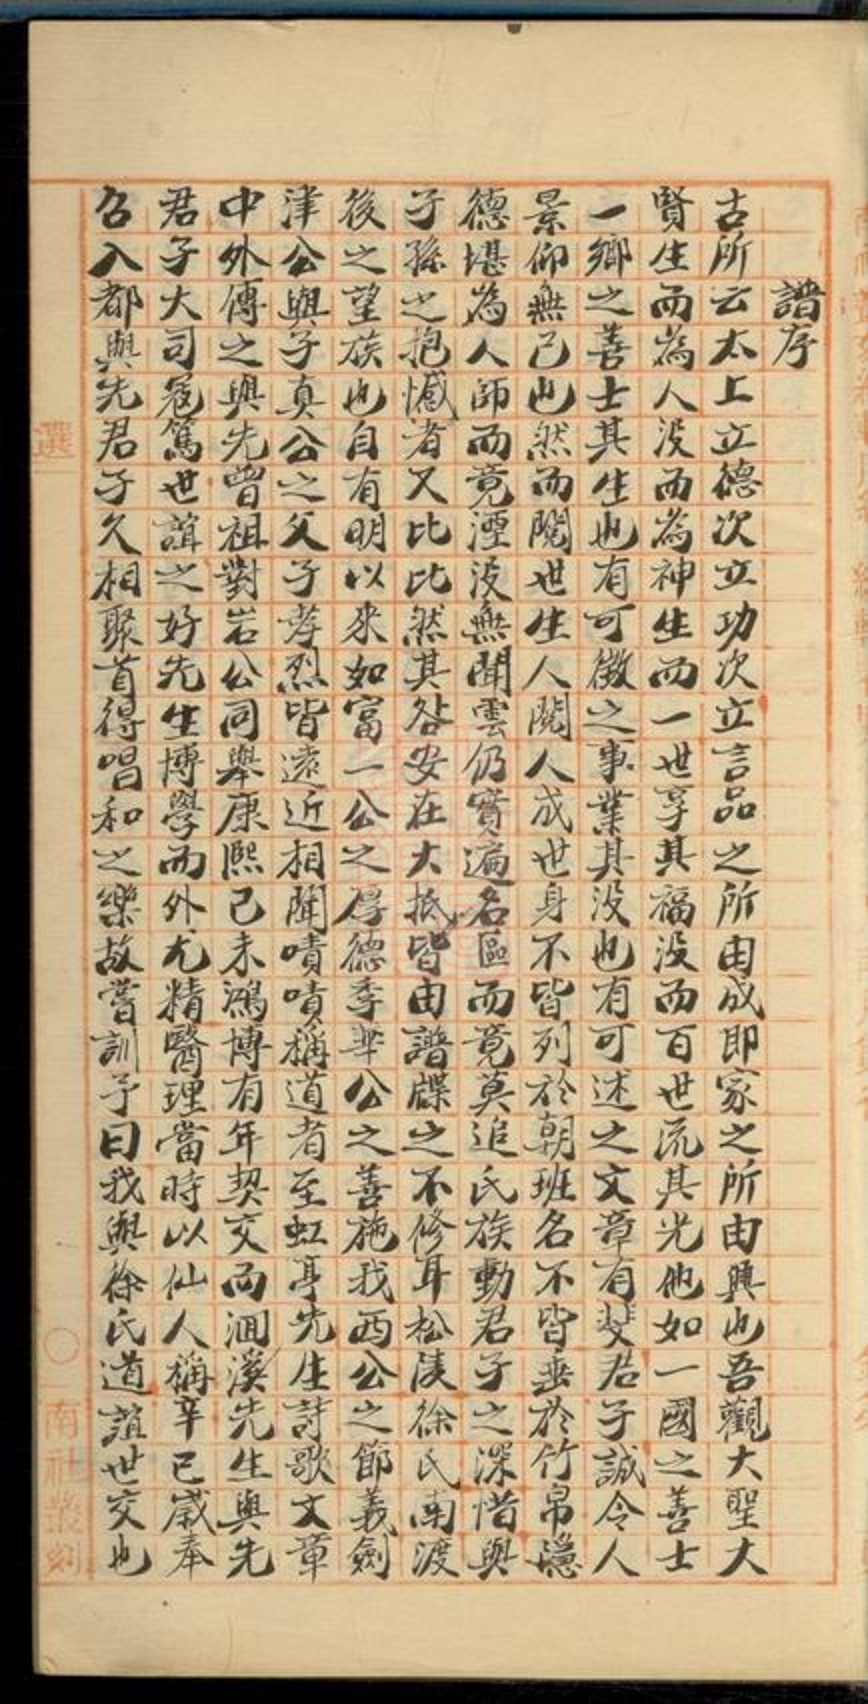 譜序
古所云太上立德次立功次立言品之所由成即家之所由興也吾觀大聖大
賢生而為人没而為神生而一世享其福没而百世流其光他如一國之善士
一鄉之善士其生也有可徵之事業其没也有可述之文章有斐君子誠令人
景仰無已也然而閱世生人閱人成世身不皆列於朝班名不皆垂於竹帛隱
德堪為人師而竟湮没無聞雲仍實遍名區而竟莫追氏族動君子之深惜與
子孫之抱憾者又比比然其咎安在大抵皆由譜牒之不修耳松陵徐氏南渡
後之望族也自有明以來如富一公之厚德季華公之善施我西公之節義劍
津公與子真公之父子孝烈皆遠近相聞嘖嘖稱道者至虹亭先生詩歌文章
中外傳之與先曾祖對岩公同舉康熙己未鴻博有年契交而洄溪先生與先
君子大司寇篤世誼之好先生博學而外尤精醫理當時以仙人稱辛已歲奉
召入都與先君子久相聚首得唱和之樂故嘗訓予曰我與徐氏道誼世交也
選
南社叢刻